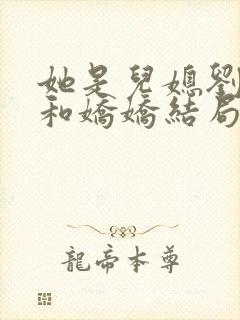 她是兒媳劉
和嬌嬌結局
龍帝本尊